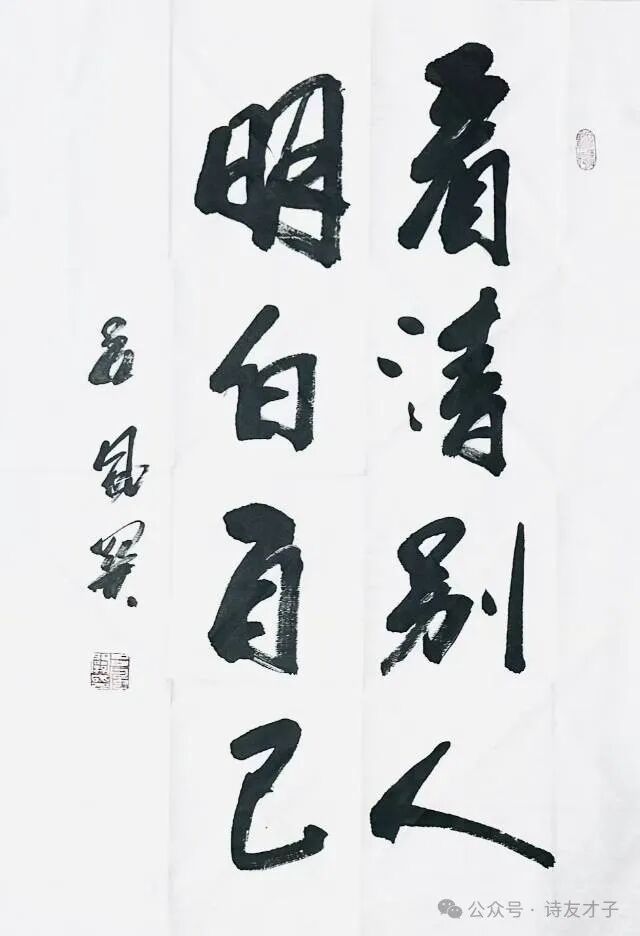 看清别人
明白自己
公众号·诗友才子